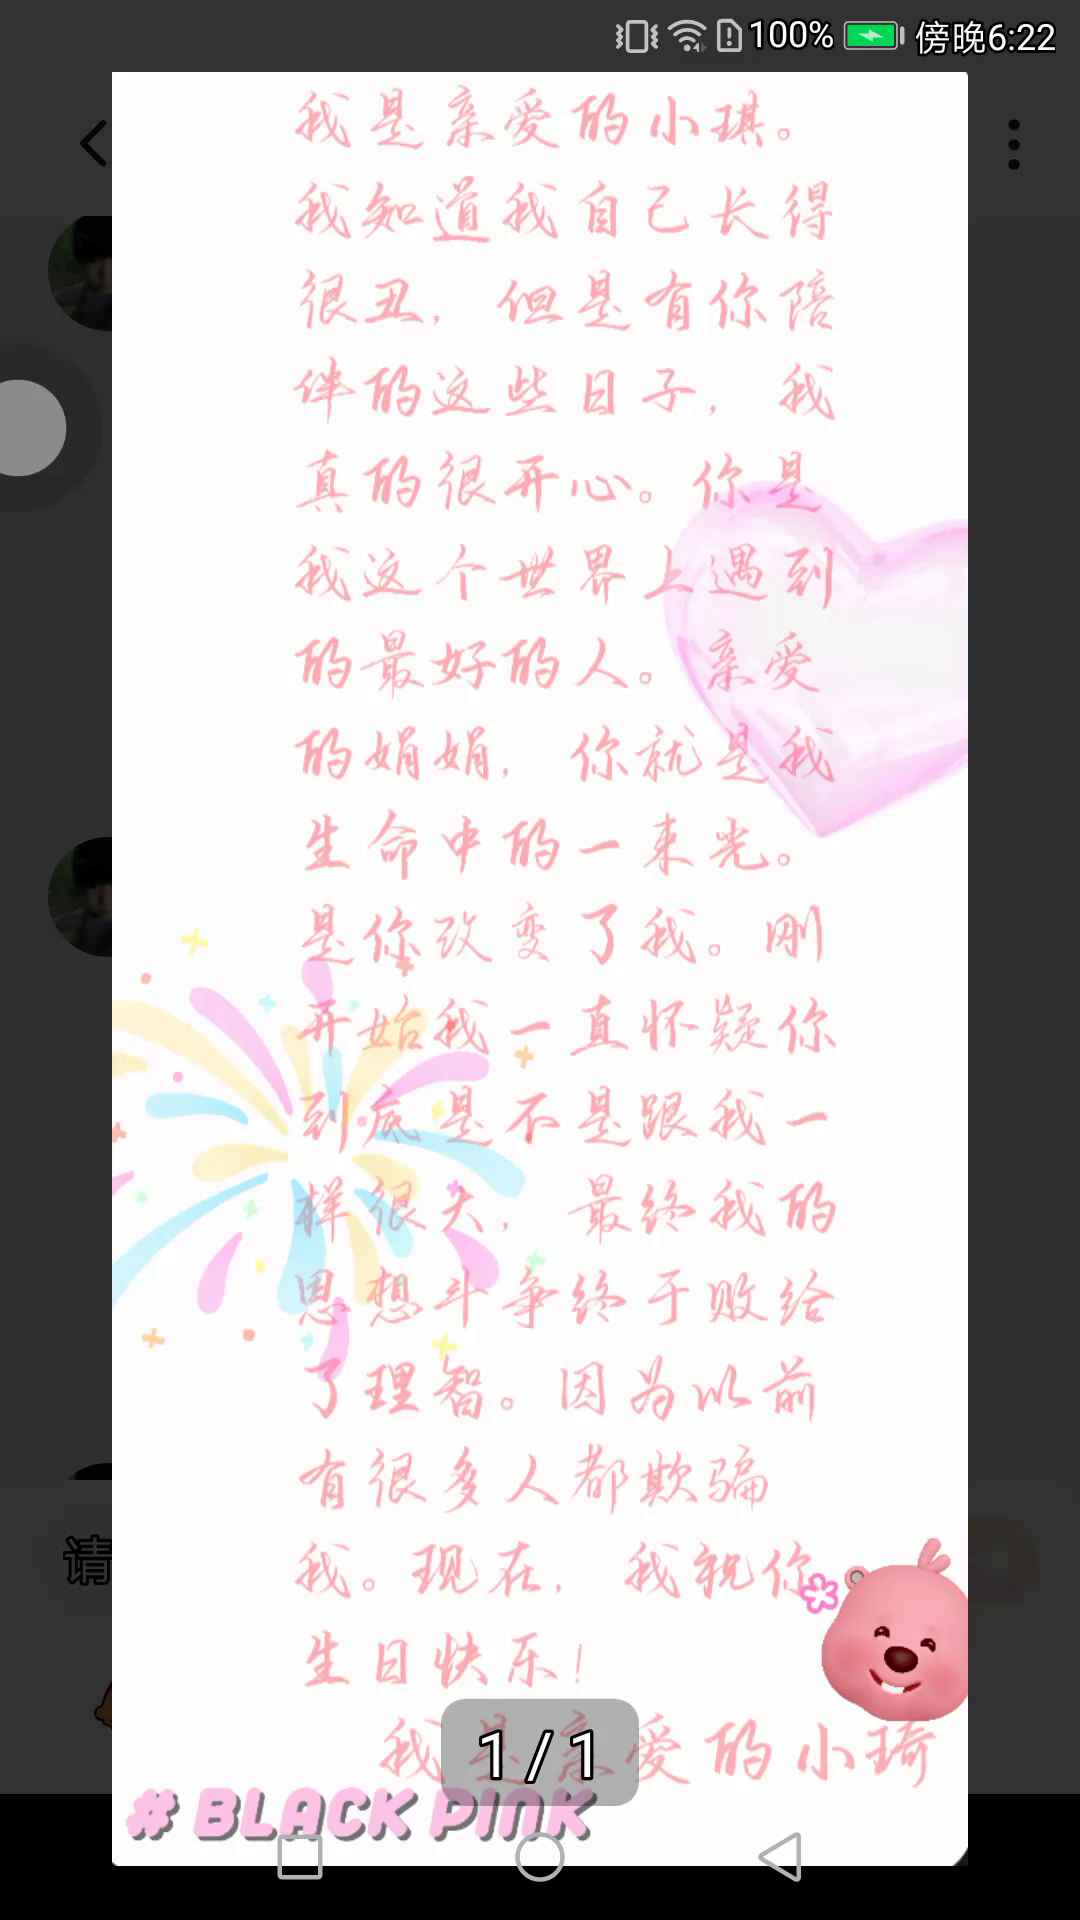 100% 傍晚6:22
我是亲爱的小琪。
我知道我自己长得
很丑，但是有你陪
伴的这些日子，我
真的很开心。你是
我这个世界上遇到
的最好的人。亲爱
的娟娟，你就是我
生命中的一束光。
是你改变了我。刚
开始我一直怀疑你
到底是不是跟我一
样很大，最终我的
思想斗争终于败给
了理智。因为以前
有很多人都欺骗
我。现在，我祝你
生日快乐！
我是亲爱的小琦
1/1
# BLACK PINK
请